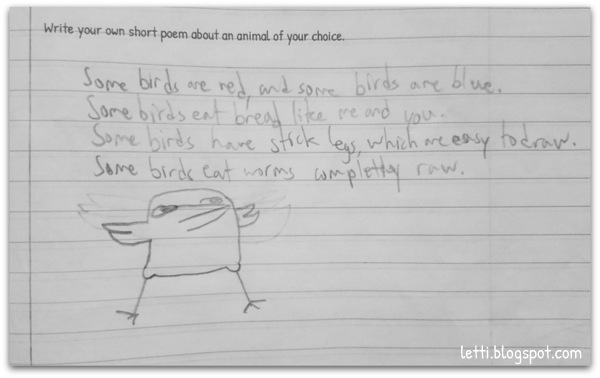 Write your own short poem about an animal of your choice.
Some birds are red, and some birds are blue.
Some birds eat bread like me and you.
Some birds have stick legs, which are easy to draw.
Some birds eat worms complettly raw.
letti.blogspot.com